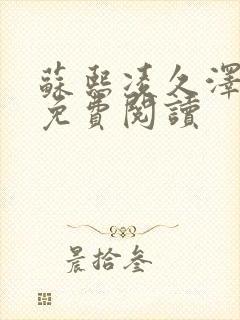 蘇熙凌久澤
免費閱讀
晨拾叁